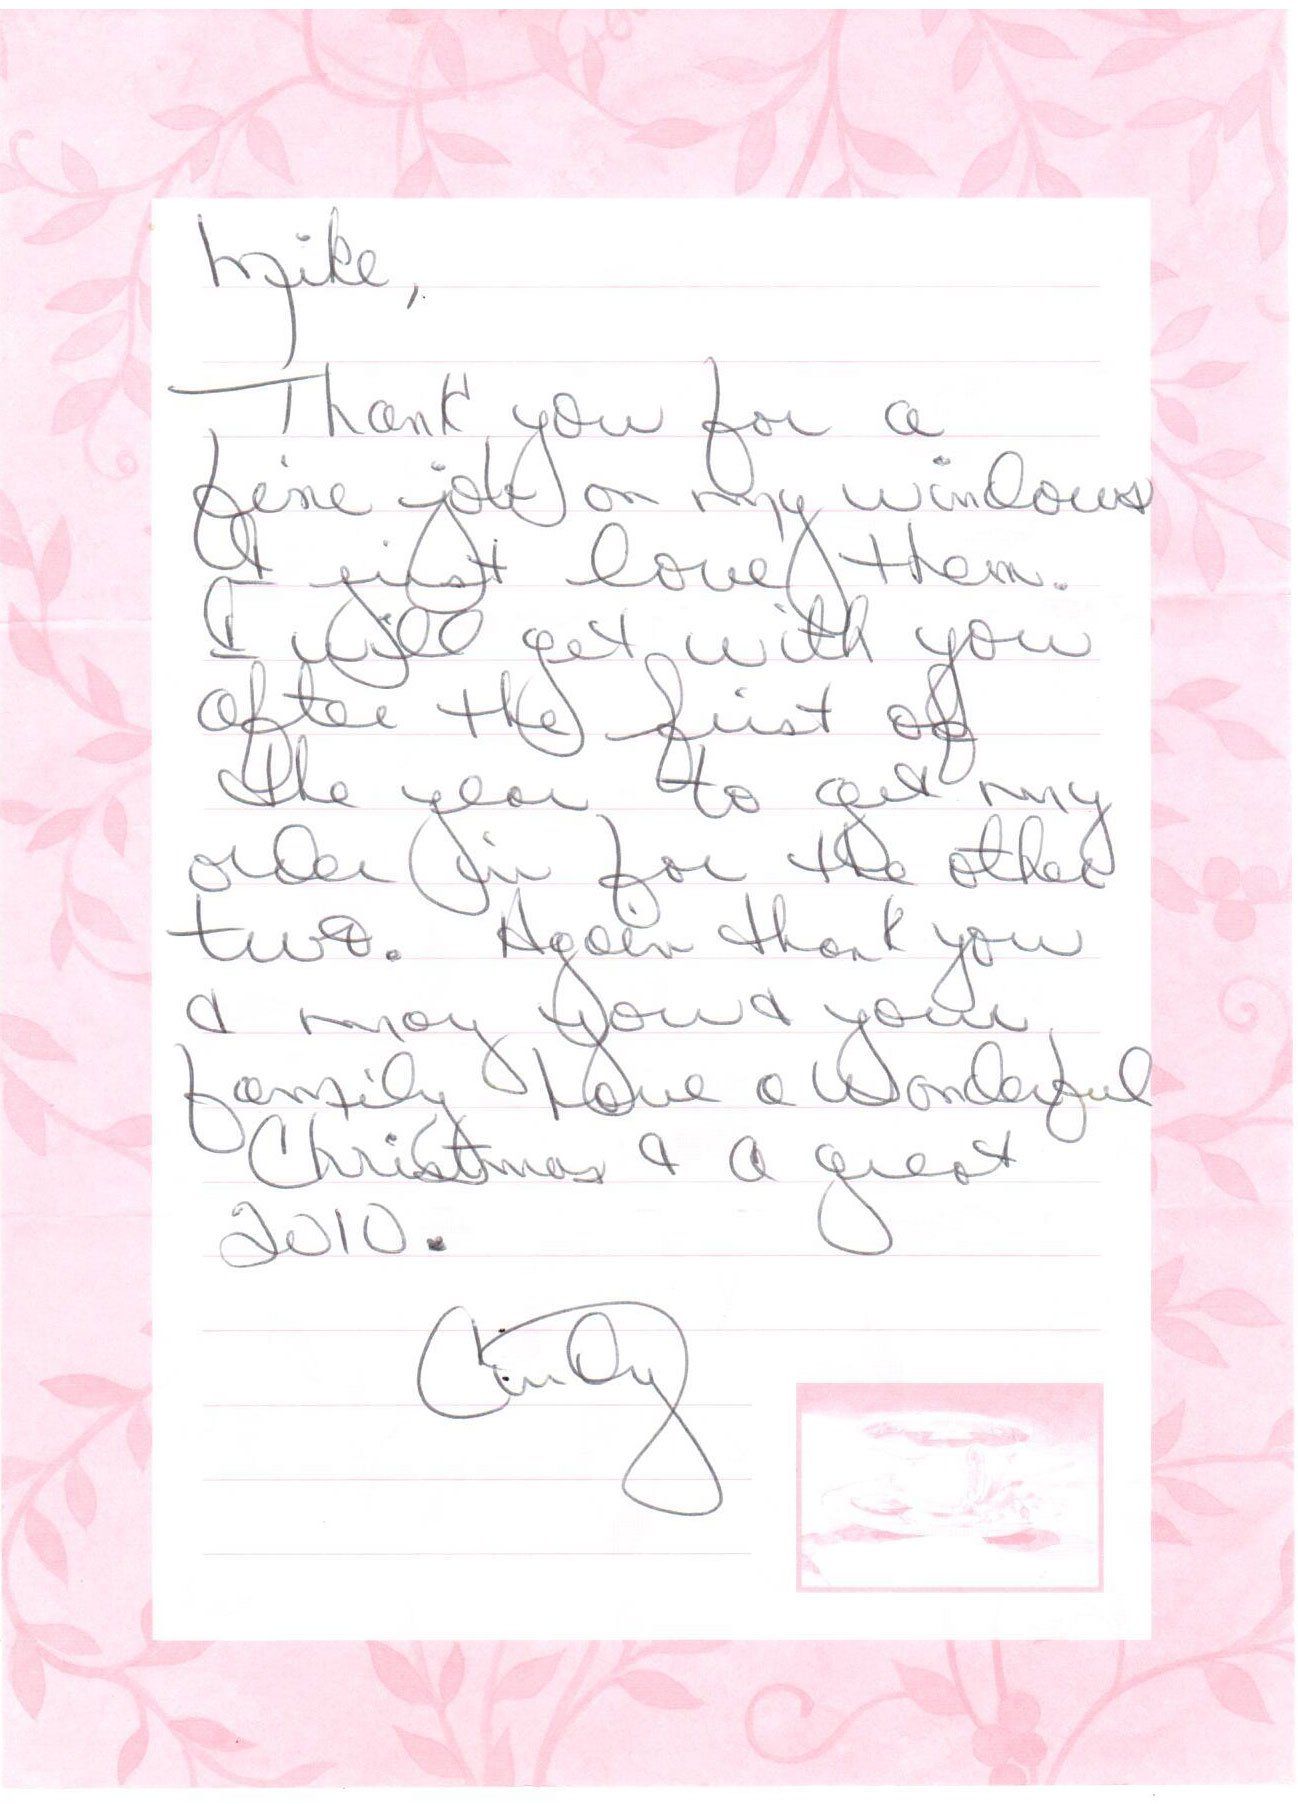 Mike,
Thank you for a
fine job on my windows
I just love them.
I will get with you
after the first of
the year to get my
order in for the other
two. Again thank you
& may you & your
family have a wonderful
Christmas & a great
2010.
Cindy